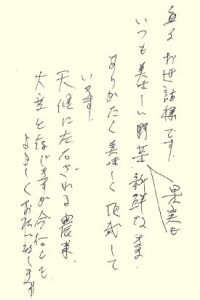 毎々お世話様です。
果実も
いつも美味しい野菜新鮮なまま
ありがたく美味しく頂戴して
います。
天候に左右される農業、
大変と存じますが今后とも
よろしくお願い致します